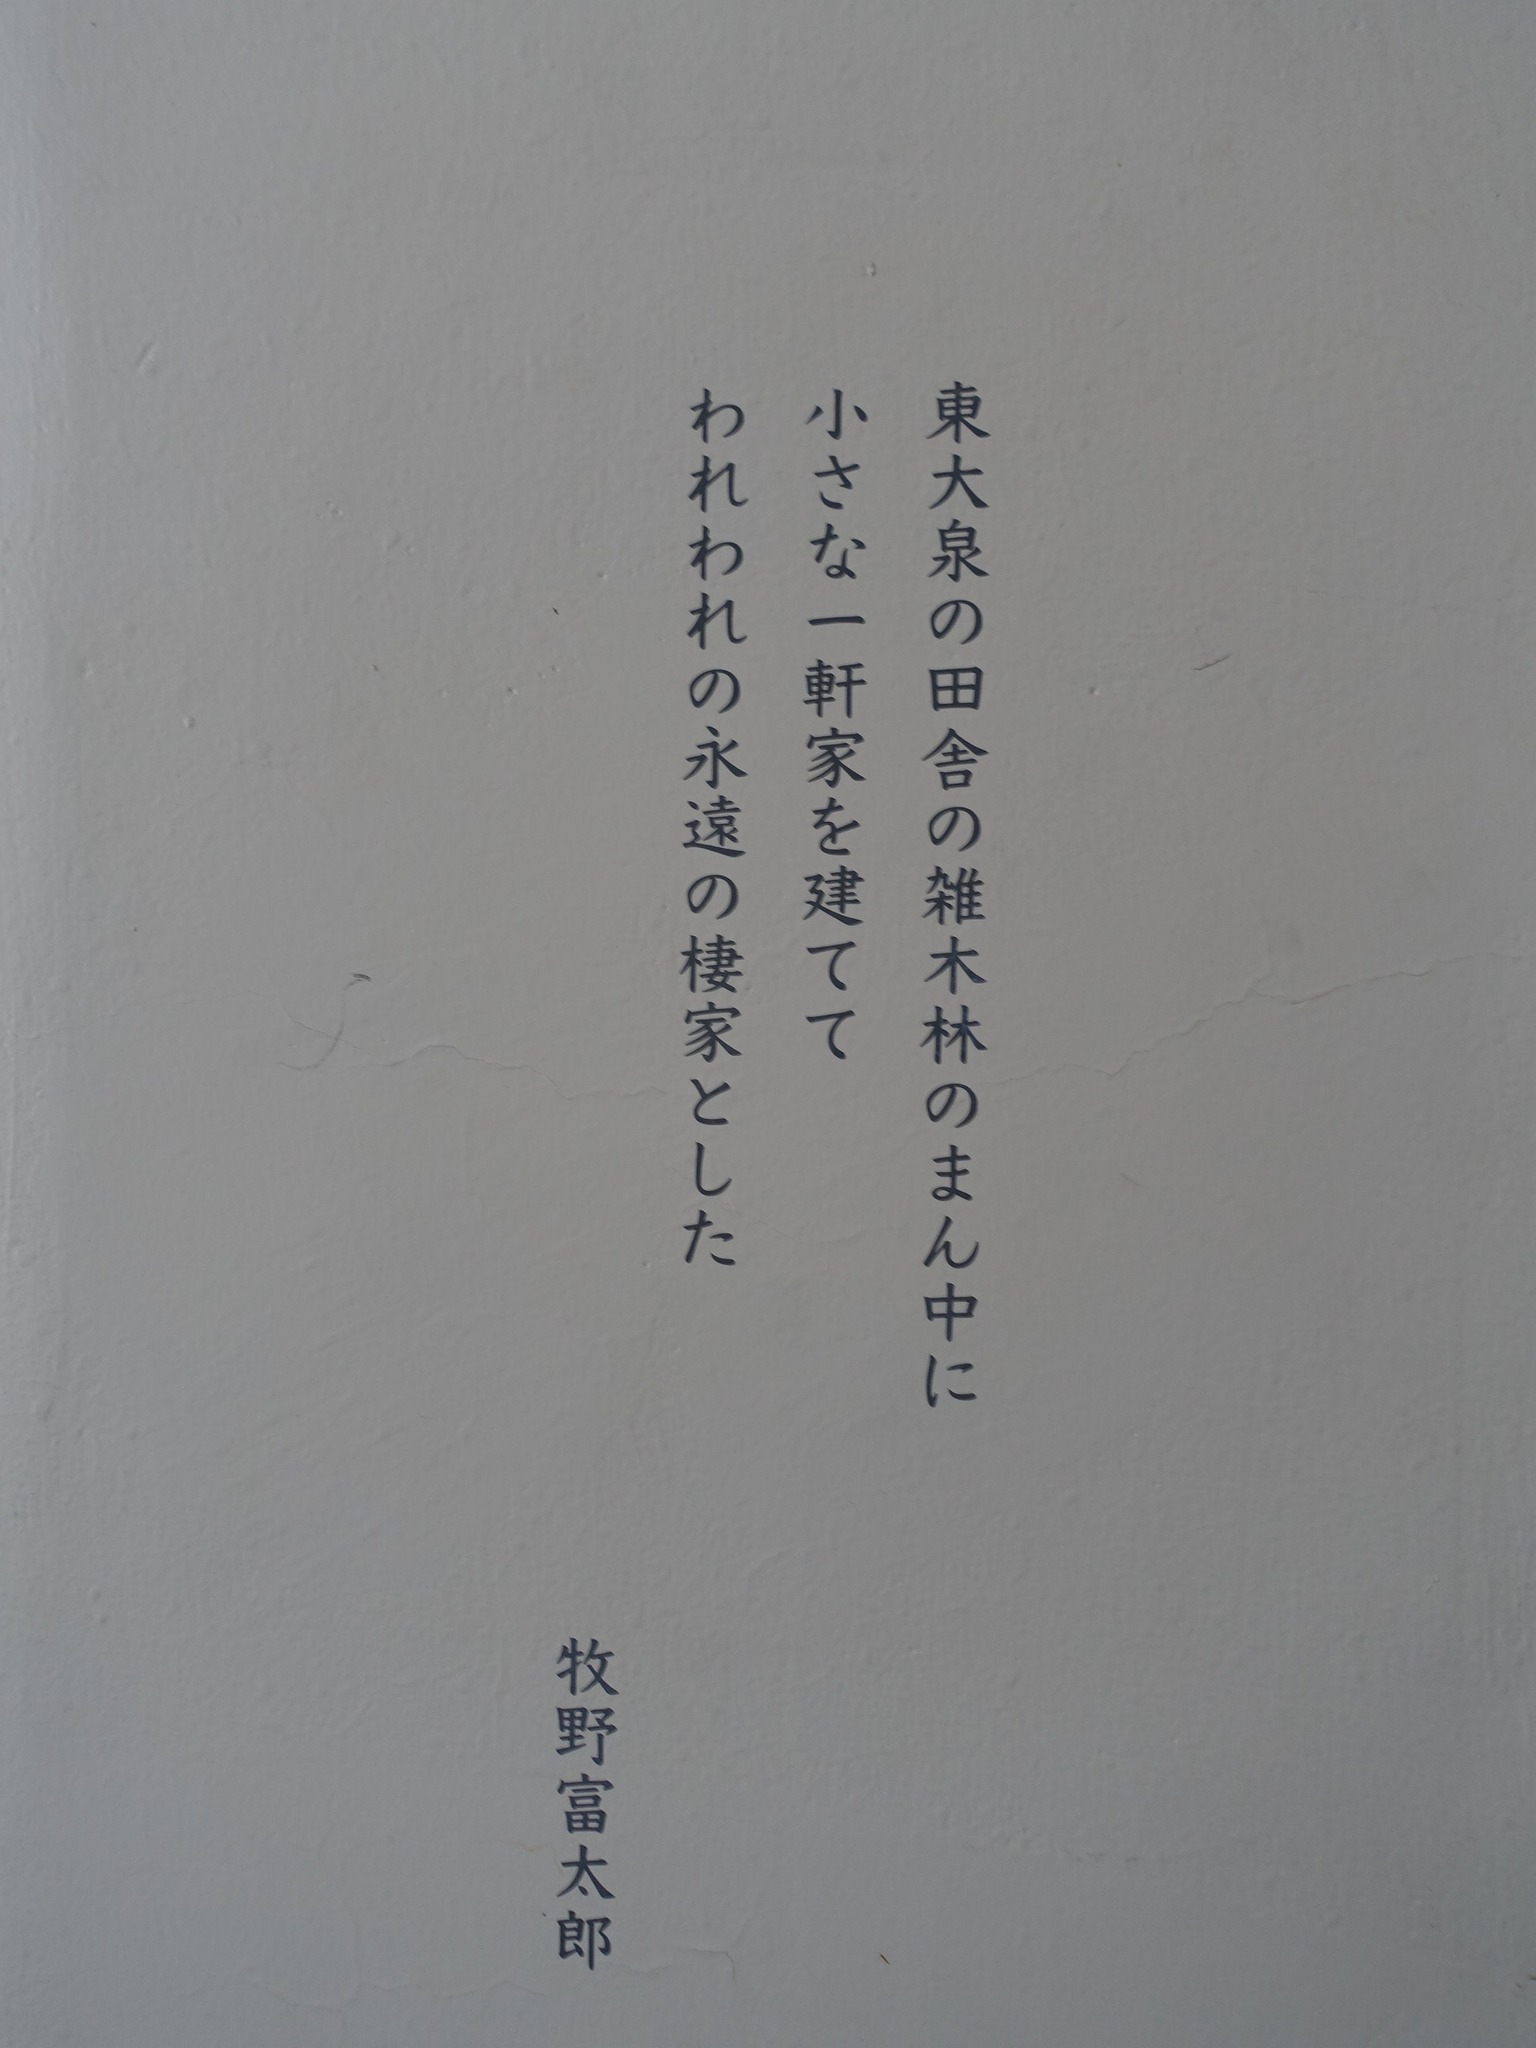 東大泉の田舎の雑木林のまん中に
小さな一軒家を建てて
われわれの永遠の棲家とした
牧野富太郎